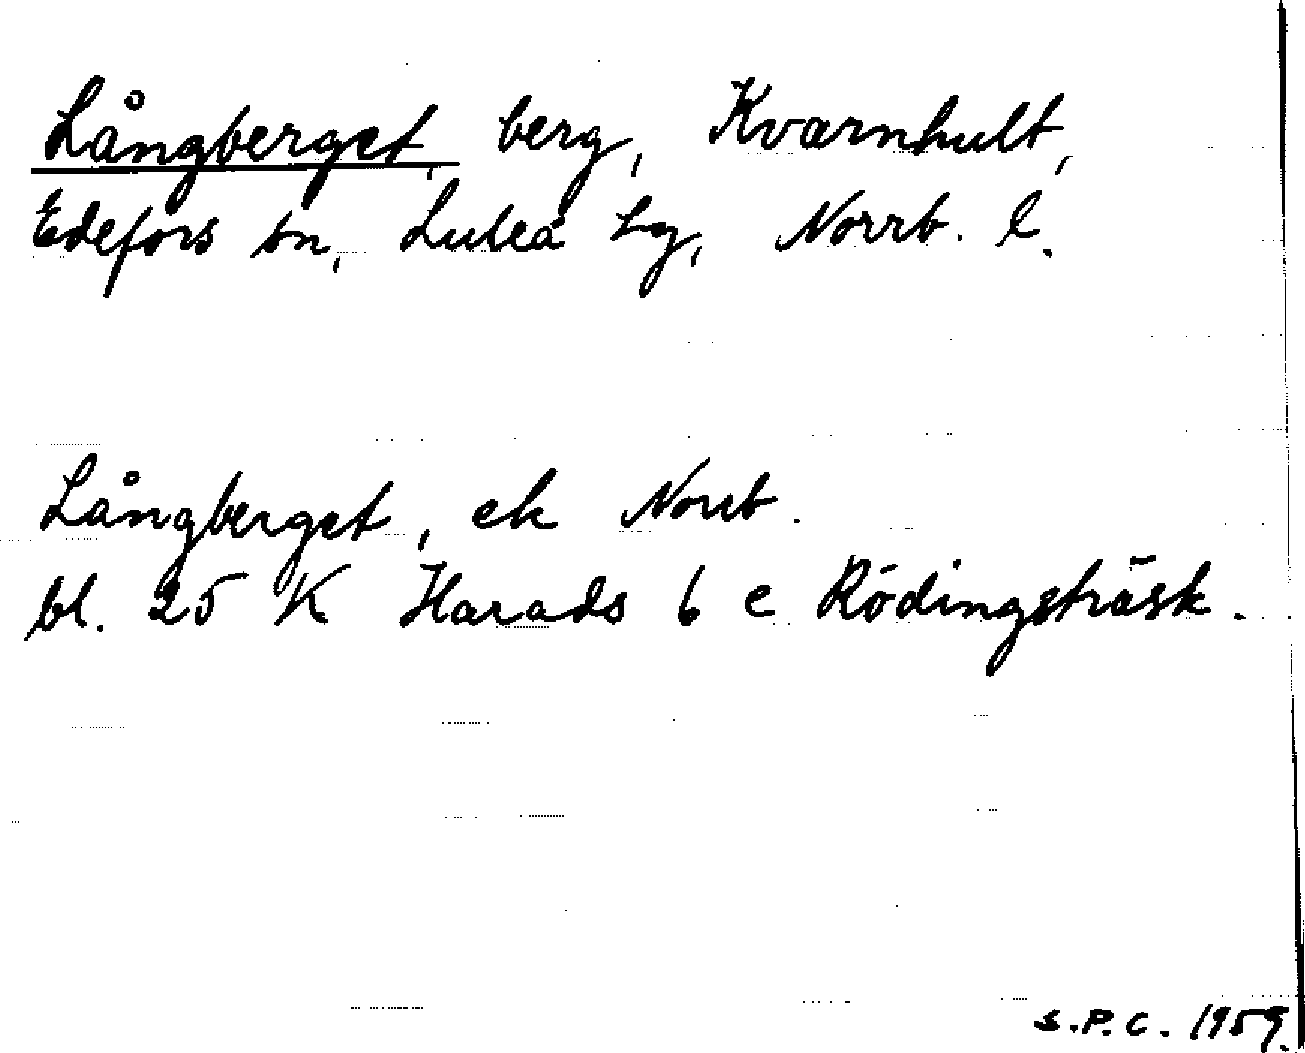 Långberget, berg, Kvarnhult,
Edefors sn, Luleå tg, Norrb. l.
Långberget, ek Norrb.
bl. 25 K Harads 6 c Rödingsträsk.
S.P.C. 1959.